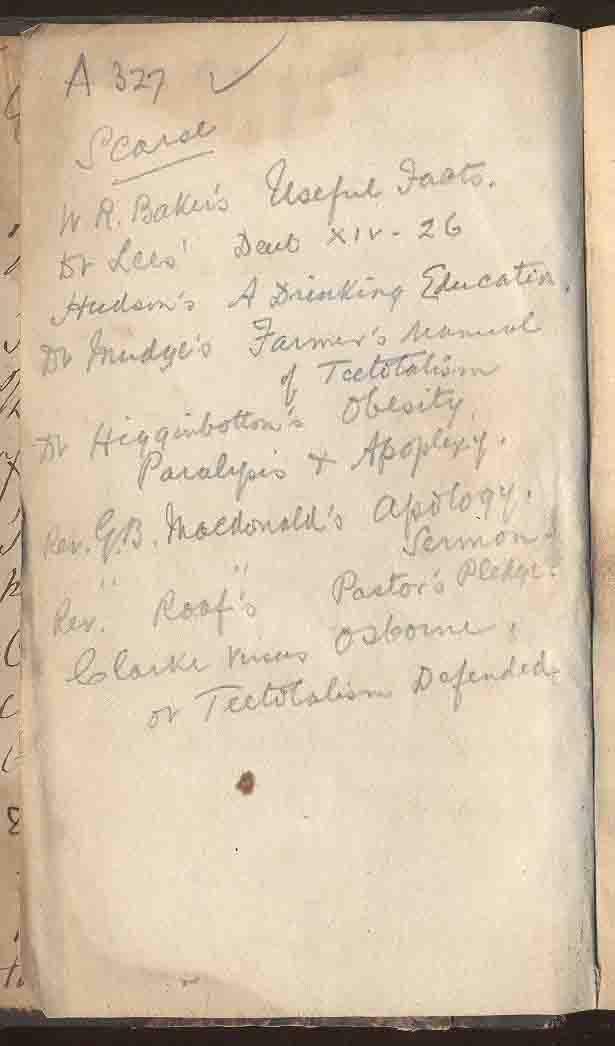 A 327 ✓
Scarce
W R. Baker's Useful Facts.
Dr Lees' Deut XIV - 26
Hudson's A Drinking Education.
Dr Mudge's Farmer's Manual
of Teetotalism
Dr Higginbotton's Obesity,
Paralysis & Apoplexy.
Rev. G.B. Macdonald's Apology.
" " Sermon.
Rev. Roaf's Pastor's Pledge.
Clarke versus Osborne,
or Teetotalism Defended